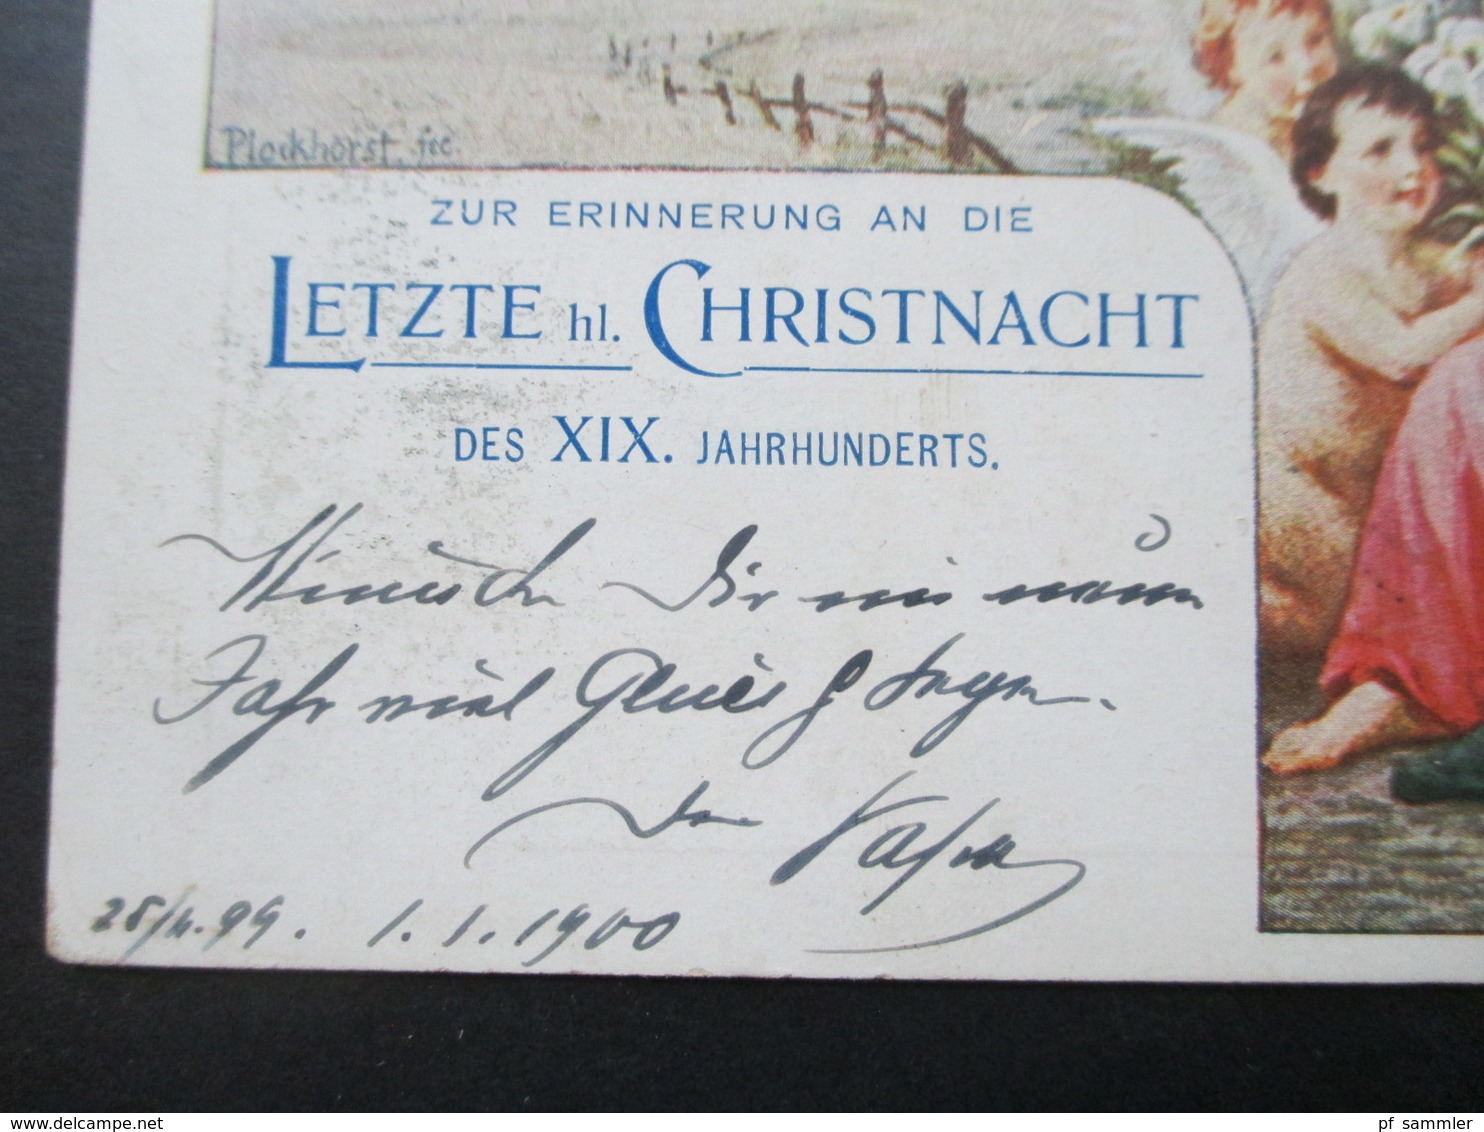 Plockhorst. fec.
ZUR ERINNERUNG AN DIE
LETZTE hl. CHRISTNACHT
DES XIX. JAHRHUNDERTS.
Wünsche Dir im neuen
Jahr viel Glück & Segen.
Dein
1.1.1900
delcampe.net
pf_sammler